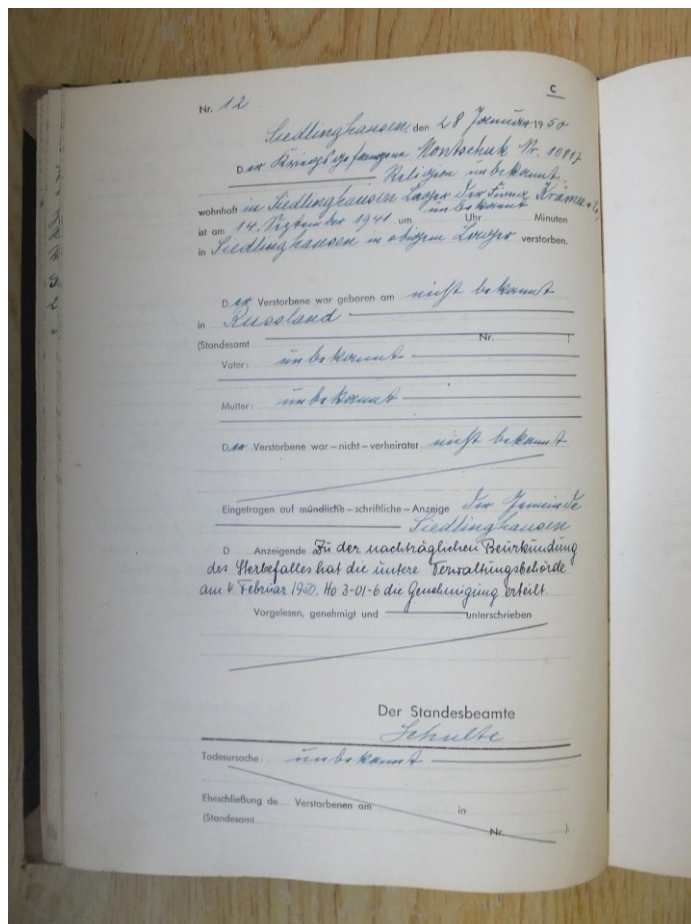 C
Nr. 12
Siedlinghausen, den 28 Januar 1950
Der Kriegsgefangene Montschuk Nr. 10817
Religion unbekannt.
wohnhaft in Siedlinghausen Lager der Firma Krämer & Co,
ist am 14. September 1941 um unbekannt Uhr Minuten
in Siedlinghausen in obigem Lager verstorben.
Der Verstorbene war geboren am nicht bekannt
in Russland
(Standesamt Nr. )
Vater: unbekannt
Mutter: unbekannt
Der Verstorbene war – nicht – verheiratet nicht bekannt
Eingetragen auf mündliche – schriftliche – Anzeige der Gemeinde
Siedlinghausen
D Anzeigende Zu der nachträglichen Beurkundung
des Sterbefalles hat die untere Verwaltungsbehörde
am 4. Februar 1950. Ho 3-01-6 die Genehmigung erteilt.
Vorgelesen, genehmigt und unterschrieben
Der Standesbeamte
Schulte
Todesursache: unbekannt
Eheschließung de Verstorbenen am in
(Standesamt Nr. ).